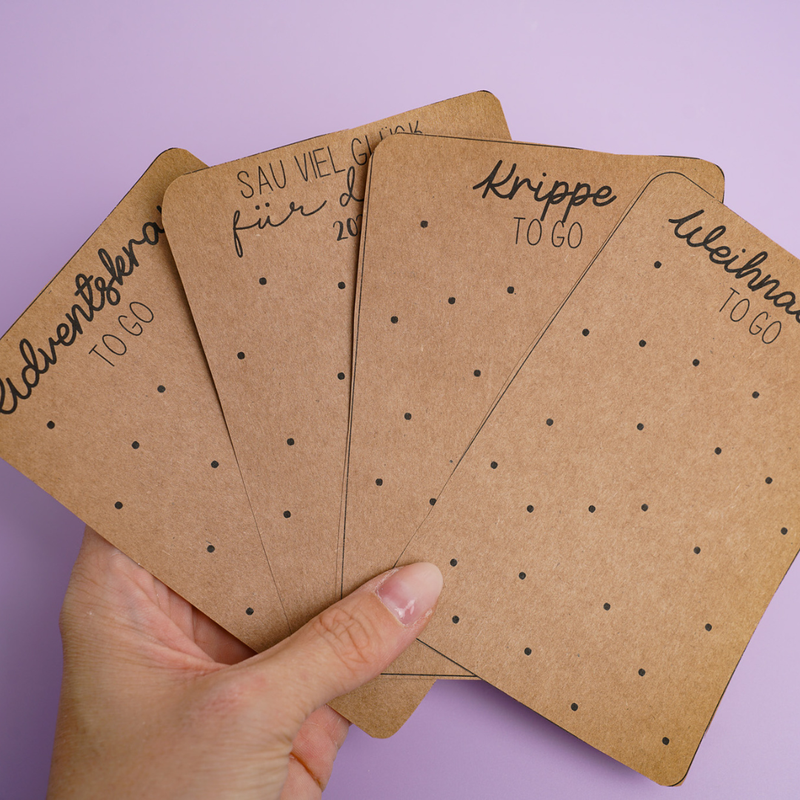 Adventskra
TO GO
SAU VIEL GLÜCK
für d
202
Krippe
TO GO
Weihna
TO GO